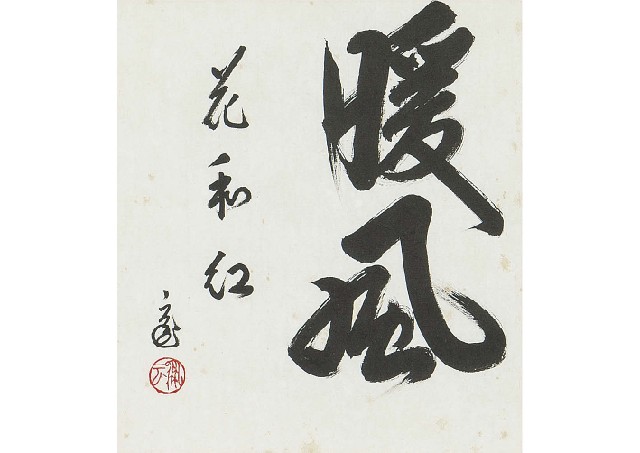 暖風
花和紅